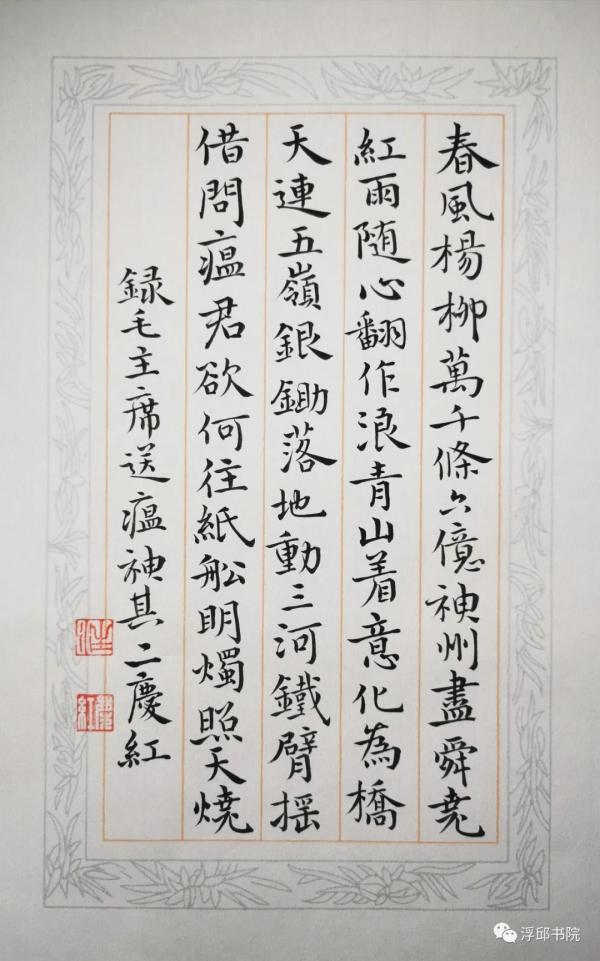 春風楊柳萬千條六億神州盡舜堯
紅雨隨心翻作浪青山着意化為橋
天連五嶺銀鋤落地動三河鐵臂摇
借問瘟君欲何往紙船明燭照天燒
録毛主席送瘟神其二慶紅
慶紅
浮邱书院